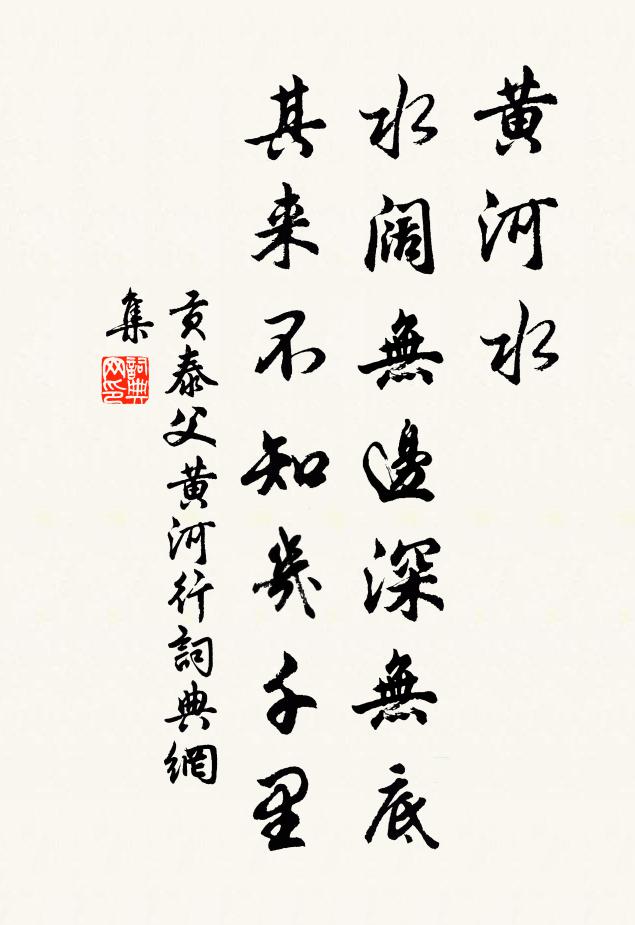 黄河水
水阔無邊深無底
其来不知幾千里
貢泰父黄河行詞典網
集
詞典
网印